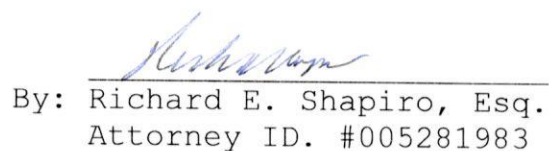 By: Richard E. Shapiro, Esq.
Attorney ID. #005281983